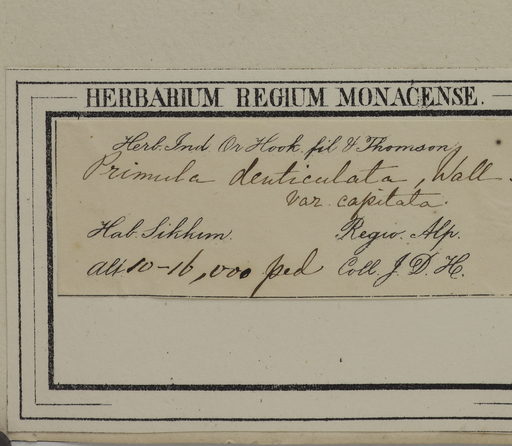 HERBARIUM REGIUM MONACENSE.
Herb. Ind Or Hook. fil & Thomson
Primula denticulata, Wall.
var. capitata.
Hab. Sikkim. Regio. Alp.
Alt 10-16,000 ped Coll. J. D. H.